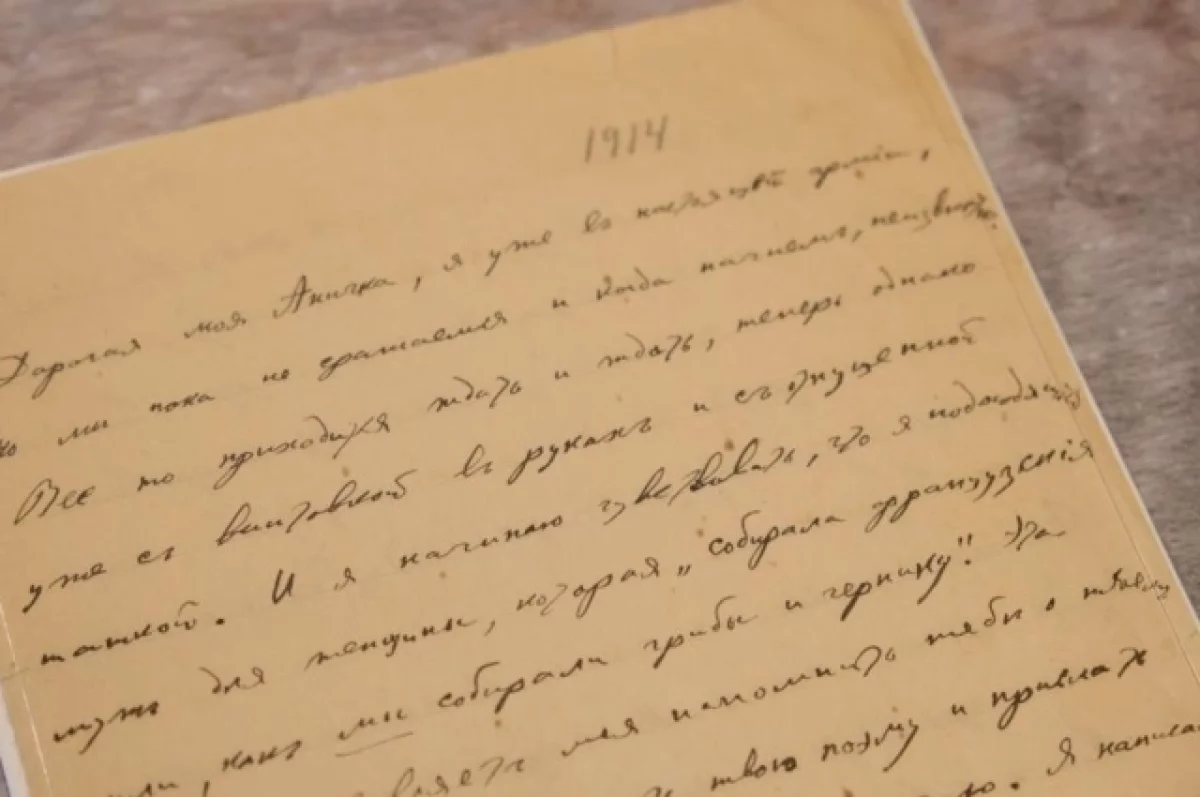 1914
Дорогая моя Аничка, я уже въ настоящей арміи,
но мы пока не сражаемся и когда начнемъ, неизвѣстно.
Все то приходится ждать и ждать, теперь однако
уже съ винтовкой въ рукахъ и съ отпущенной
шашкой. И я начинаю чувствовать, что я подходящій
мужъ для женщины, которая „собирала французскія
пули, какъ мы собирали грибы и чернику". Эта
меня напомнить тебѣ о твоемъ
твою поэму и прислать
Я написа